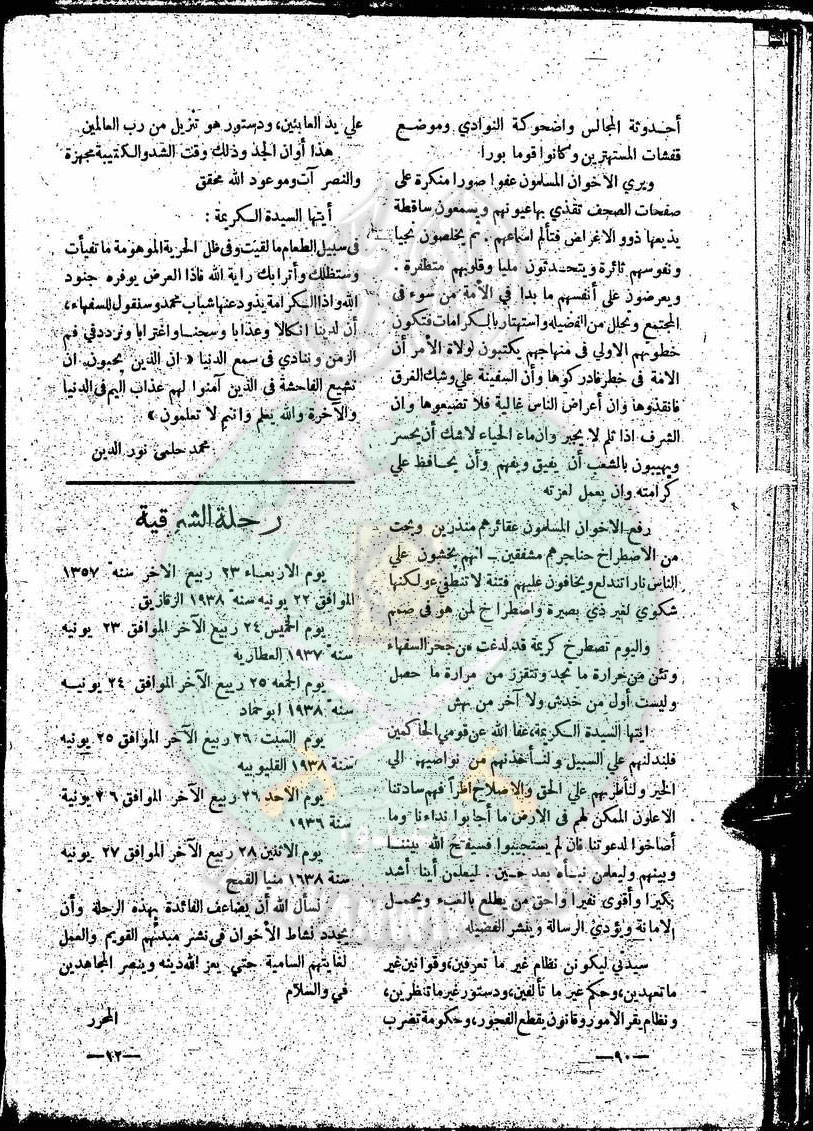 أحدوثة المجالس واضحوكة النوادي وموضع
قفشات المستهترين وكانوا قوما بورا
ويري الاخوان المسلمون عفوا صورا منكرة على
صفحات الصحف تقذي بها عيونهم ويسمعون ساقطة
يذيعها ذوو الاغراض فتألم اسماعهم . ثم يخلصون نجيا
ونفوسهم ثائرة ويتحدثون مليا وقلوبهم متطفرة .
ويعرضون علي أنفسهم ما بدا في الأمة من سوء فى
المجتمع وتحلل من الفضيله واستهتار بالكرامات فتكون
خطوتهم الاولي فى منهاجهم يكتبون لولاة الأمر أن
الامة فى خطر فادركوها وأن السفينة علي وشك الغرق
فانقذوها وان أعراض الناس غالية فلا تضيعوها وان
الشرف اذا ثلم لا يجبر وان ماء الحياء لا شك أن يحسر
ويهيبون بالشعب أن يفيق ويفهم وأن يحافظ علي
كرامته وان يعمل لعزته
رفع الاخوان المسلمون عقائرهم منذرين وبحت
من الاصطراخ حناجرهم مشفقين ــ انهم يخشون علي
الناس نارا تندلع ويخافون عليهم فتنة لا تنطفي ء ولكنها
شكوي لغير ذي بصيرة واصطراخ لمن هو فى صمم
واليوم تصطرخ كريمة قد لدغت من جحر السفهاء
وتئن من حرارة ما تجد وتتقزز من مرارة ما حصل
وليست أول من خدش ولا آخر من نهش
ايتها السيدة الكريمة، عفا الله عن قومي الحاكمين
فلبدلنهم علي السبيل ولنأخذنهم من نواصيهم الي
الخير ولنأطرنهم علي الحق والاصلاح اطراً فهم سادتنا
الاعلون الممكن لهم فى الارض ما أجابوا نداءنا وما
أصاخوا لدعوتنا فان لم يستجيبوا فسيفتح الله بيننا
وبينهم وليعلمن نبأه بعد حين . ليعلمن أينا أشد
نكيرا وأقوى نفيرا واحق من يطلع بالعبء ويحمل
الامانة ويؤدي الرسالة وينشر الفضيله
سيدتي ليكونن نظام غير ما تعرفين، وقوانين غير
ما تعهدين، وحكم غير ما تألفين، ودستور غير ما تنظرين،
ونظام يقر الامور وقانون يقطع الفجور، وحكومة تضرب
—٩٠—
علي يد العابثين، ودستور هو تنزيل من رب العالمين
هذا أوان الجد وذلك وقت الشد والكتيبة مجهزة
والنصر آت وموعود الله محقق
أيتها السيدة الكريمة :
فى سبيل الطعام ما لقيت وفى ظل الحرية الموهومة ما تفيأت
وستظلك وأترابك راية الله فاذا العرض يوفره جنود
الله واذا الكرامة يذود عنها شباب محمد وسنقول للسفهاء،
أن لدينا انكالا وعذابا وسجنا واغترابا ونردد في فم
الزمن وننادي فى سمع الدنيا « ان الذين يحبون ان
تشيع الفاحشة فى الذين آمنوا لهم عذاب اليم فى الدنيا
والآخرة والله يعلم وانتم لا تعلمون »
محمد حلمى نور الدين
رحلة الشرقية
يوم الاربعاء ٢٣ ربيع الآخر سنة ١٣٥٧
الموافق ٢٢ يونيه سنة ١٩٣٨ الزقازيق
يوم الخميس ٢٤ ربيع الآخر الموافق ٢٣ يونيه
سنة ١٩٣٧ العطاريه
يوم الجمعه ٢٥ ربيع الآخر الموافق ٢٤ يونيه
سنة ١٩٣٨ ابو حماد
يوم السبت ٢٦ ربيع الآخر الموافق ٢٥ يونيه
سنة ١٩٣٨ القليوبيه
يوم الاحد ٢٦ ربيع الآخر الموافق ٢٦ يونية
سنة ١٩٣٦
يوم الاثنين ٢٨ ربيع الآخر الموافق ٢٧ يونيه
سنة ١٦٣٨ منيا القمح
نسأل الله أن يضاعف الفائدة بهذه الرحلة وأن
يجدد نشاط الأخوان فى نشر مبدئهم القويم والعمل
لغايتهم السامية حتي يعز الله دينه وينصر المجاهدين
في والسلام
المحرر
—٤٢—